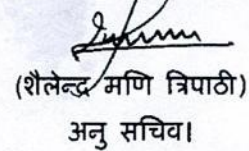 (शैलेन्द्र मणि त्रिपाठी)
अनु सचिव।